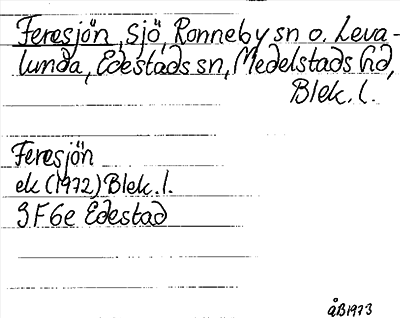 Feresjön, sjö, Ronneby sn o. Leva-
lunda, Edestads sn, Medelstads hd,
Blek. l.
Feresjön
ek (1972) Blek. l.
3F6e Edestad
ÅB1973